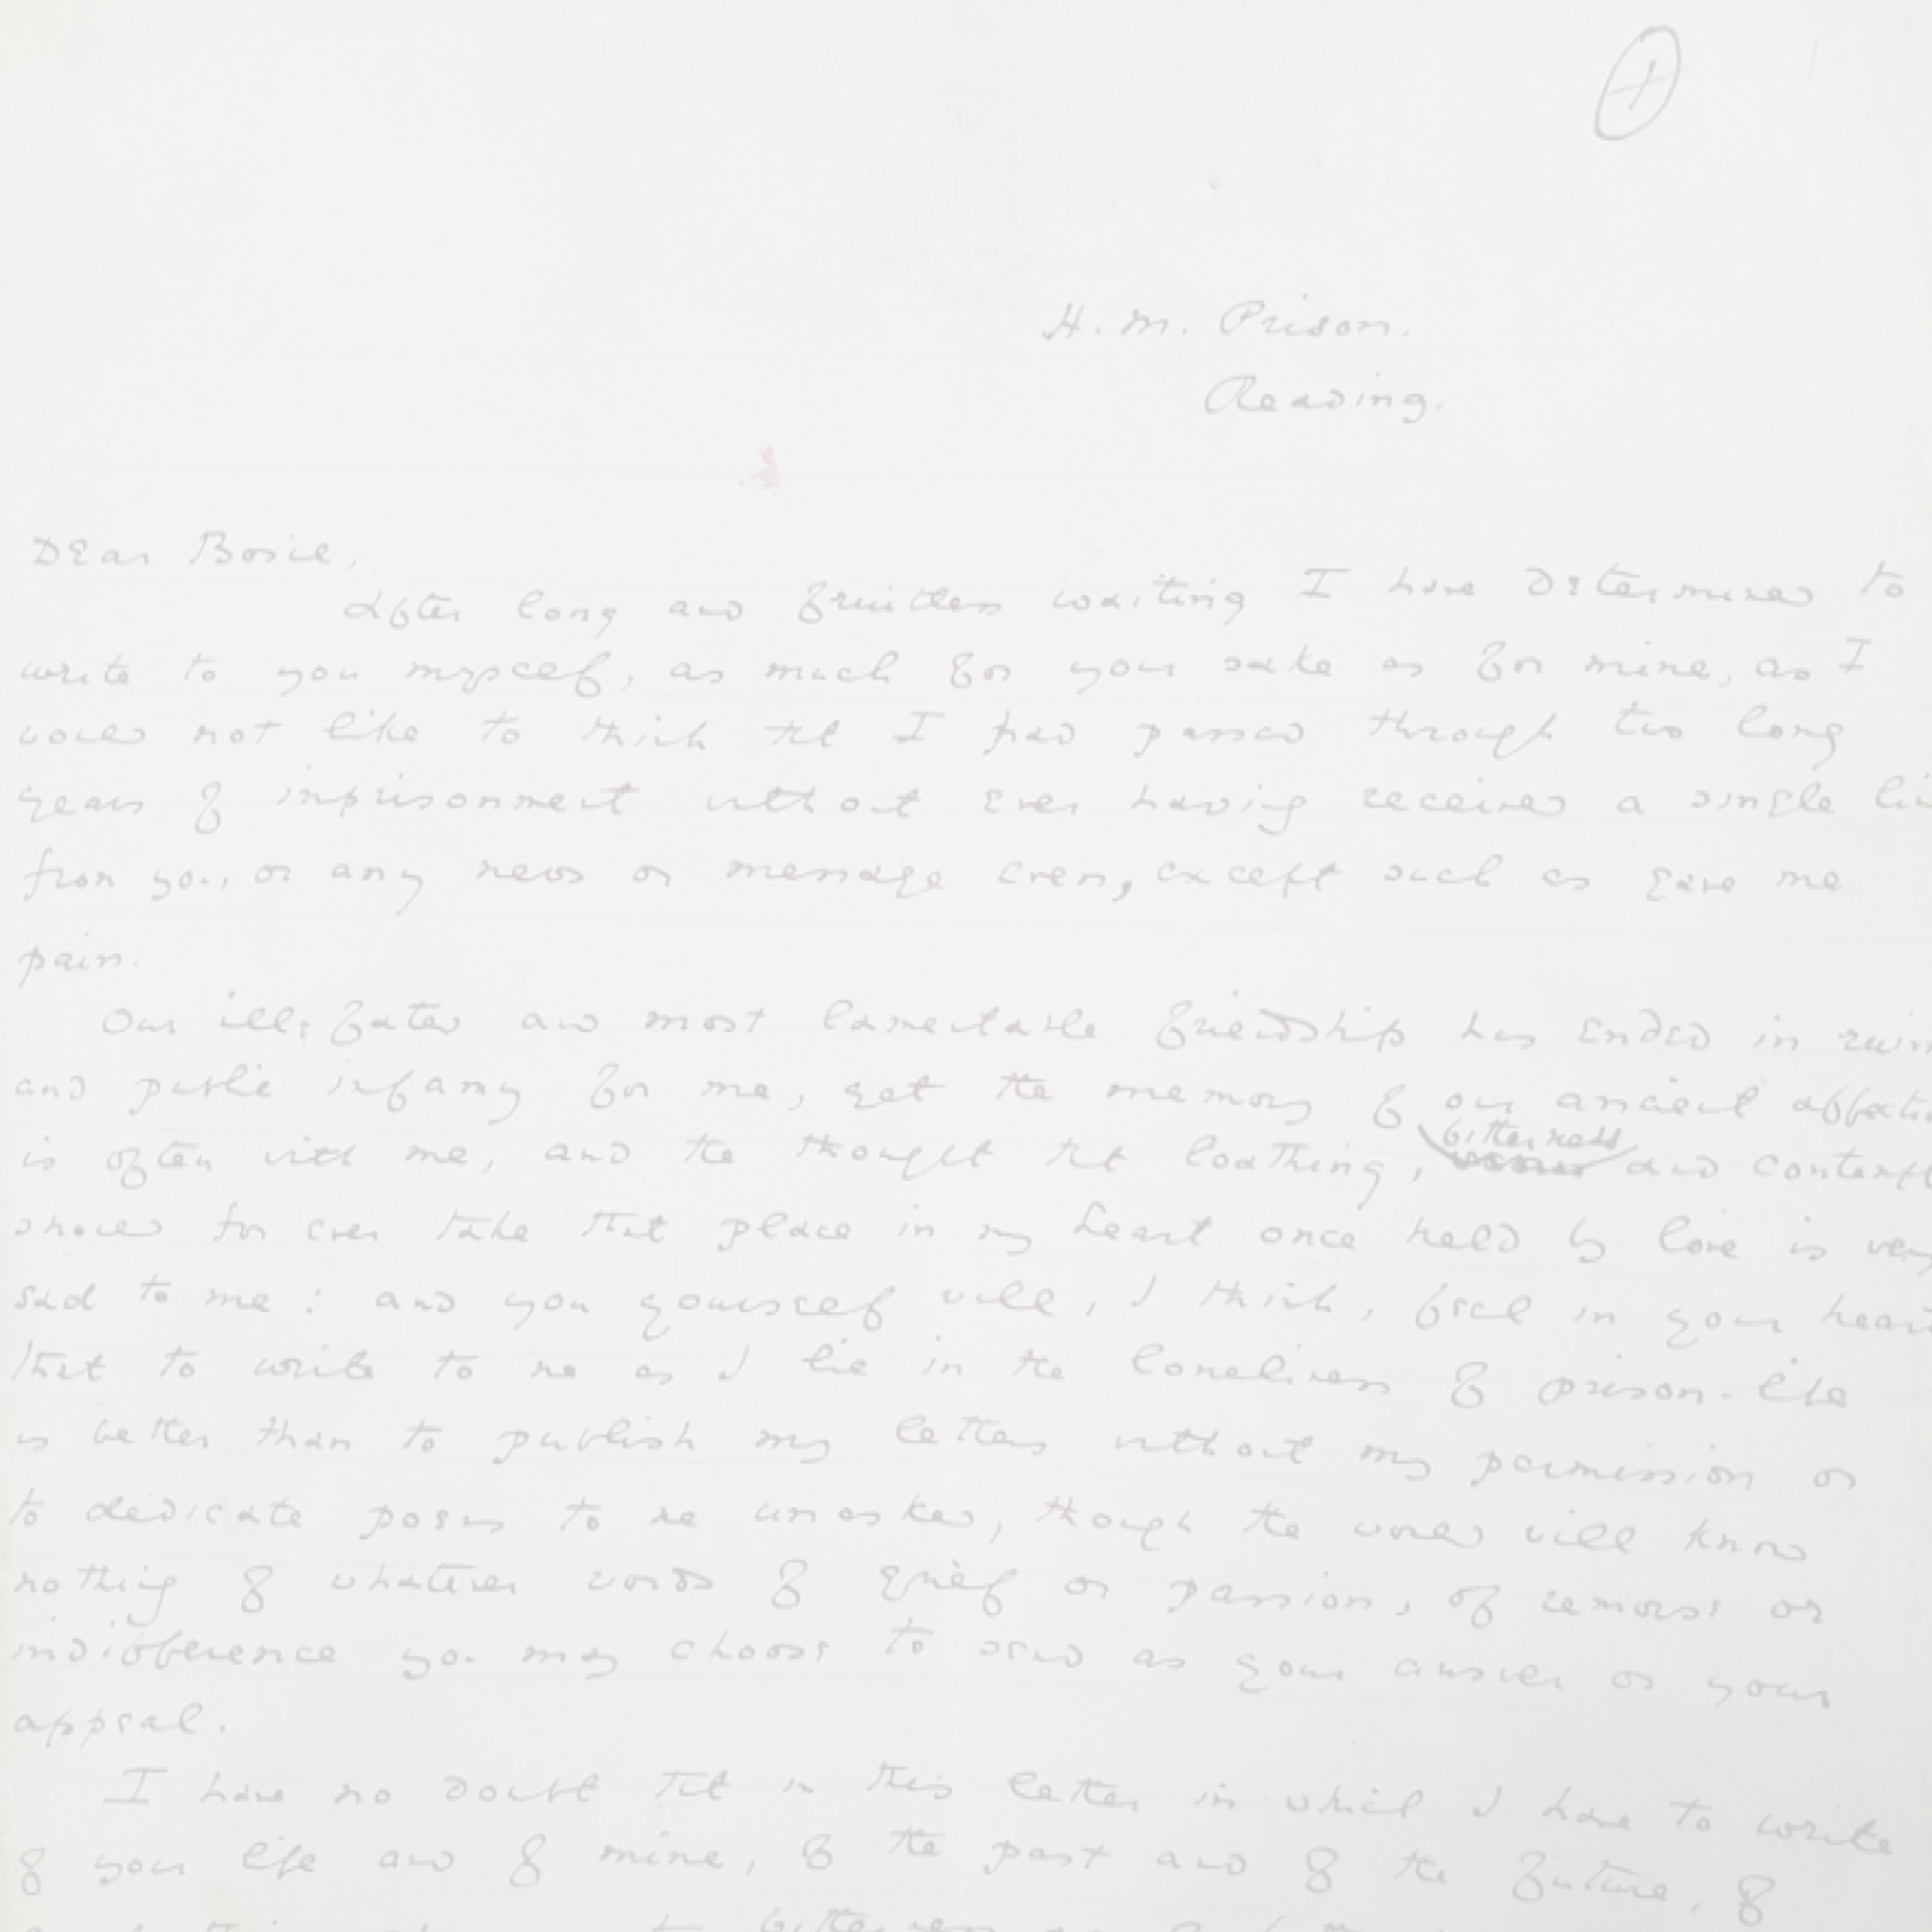 H. M. Prison.
Reading.
Dear Bosie,
After long and fruitless waiting I have determined to
write to you myself, as much for your sake as for mine, as I
would not like to think that I had passed through two long
years of imprisonment without ever having received a single lin
from you, or any news or message even, except such as gave me
pain.
Our ill-fated and most lamentable friendship has ended in ruin
and public infamy for me, yet the memory of our ancient affectio
bitterness
is often with me, and the thought that loathing, and contempt
should for ever take that place in my heart once held by love is very
sad to me: and you yourself will, I think, feel in your heart
that to write to me as I lie in the loneliness of prison-life
is better than to publish my letters without my permission or
to dedicate poems to me unasked, though the world will know
nothing of whatever words of grief or passion, of remorse or
indifference you may choose to send as your answer or your
appeal.
I have no doubt that in this letter in which I have to write
of your life and of mine, of the past and of the future, of
bitterness